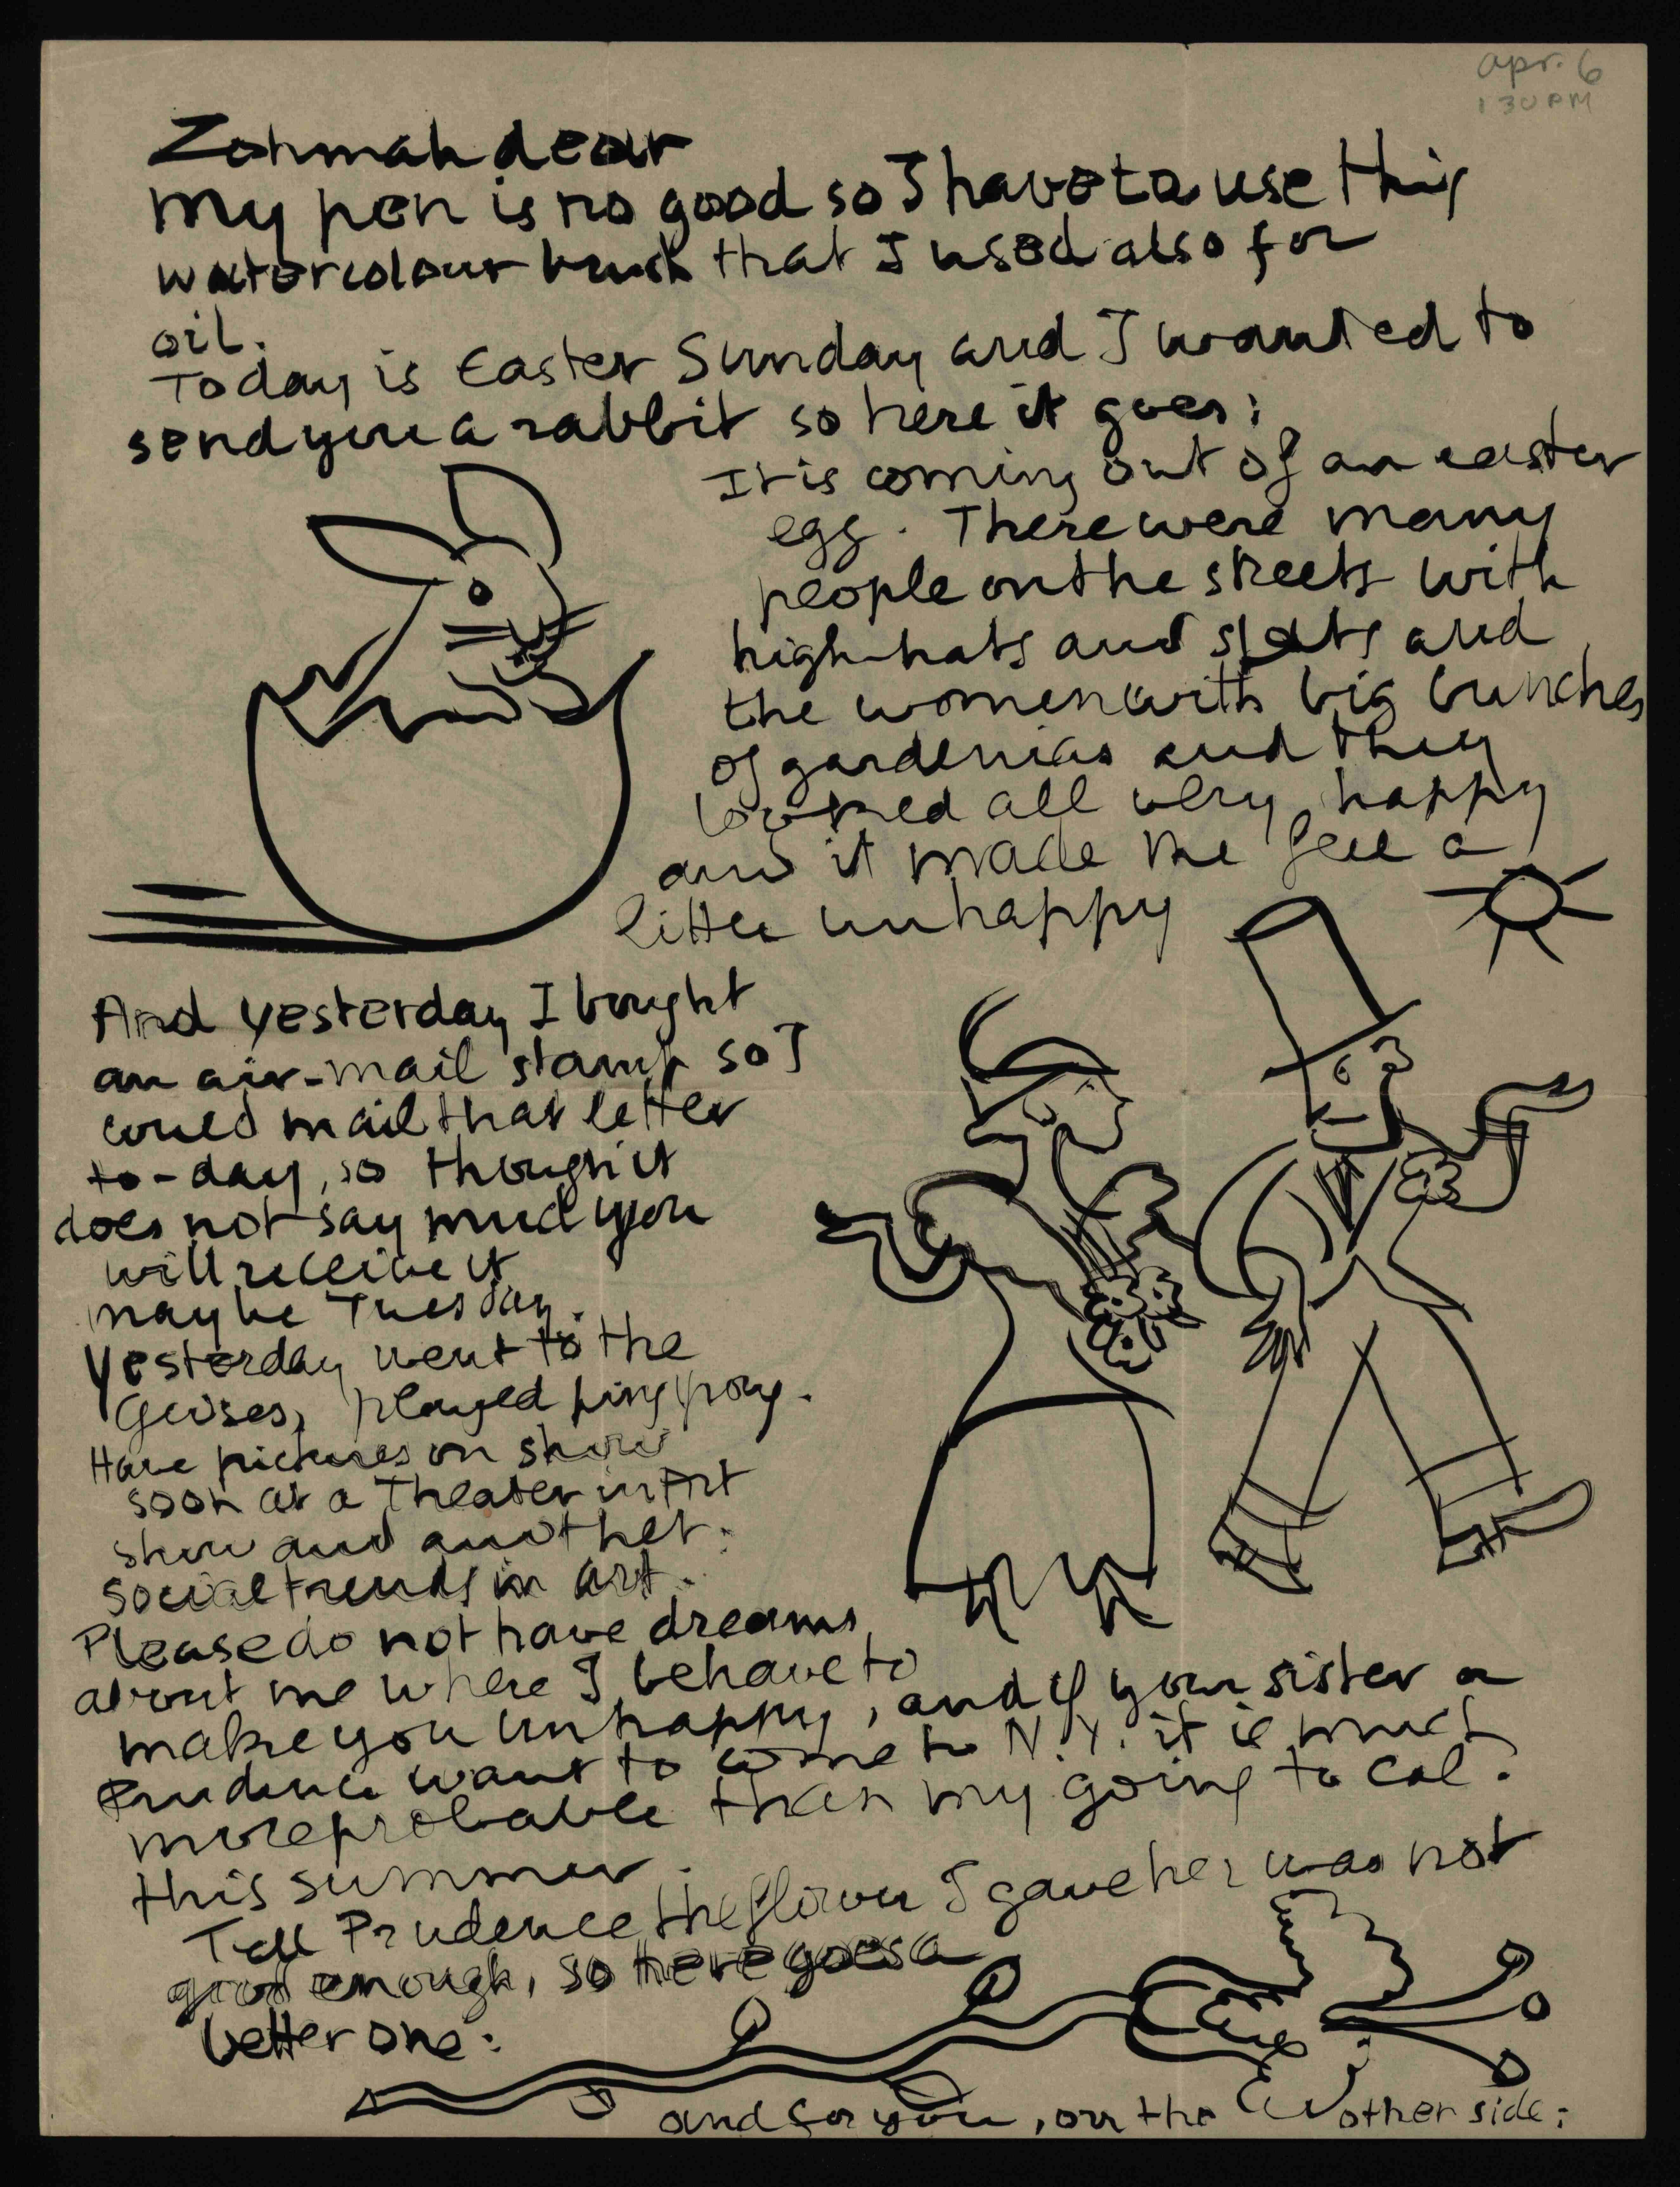 apr. 6
1 30 PM
Zohmah dear
My pen is no good so I have to use this
watercolour brush that I used also for
oil.
Today is Easter Sunday and I wanted to
send you a rabbit so here it goes:
It is coming out of an easter
egg. There were many
people on the streets with
high-hats and spats and
the women with big bunches
of gardenias and they
looked all very happy
and it made me feel a
little unhappy
And yesterday I bought
an air-mail stamp so I
could mail that letter
to-day, so though it
does not say much you
will receive it
maybe Tuesday.
Yesterday went to the
played ping pong.
Have pictures on show
soon at a Theater in Art
show and another:
social trends in art.
Please do not have dreams
about me where I behave to
make you unhappy, and if your sister or
Prudence want to come to N.Y. it is much
more probable than my going to Cal.
this summer.
Tell Prudence the flower I gave her was not
good enough, so here goes a
better one:
and for you, on the other side: